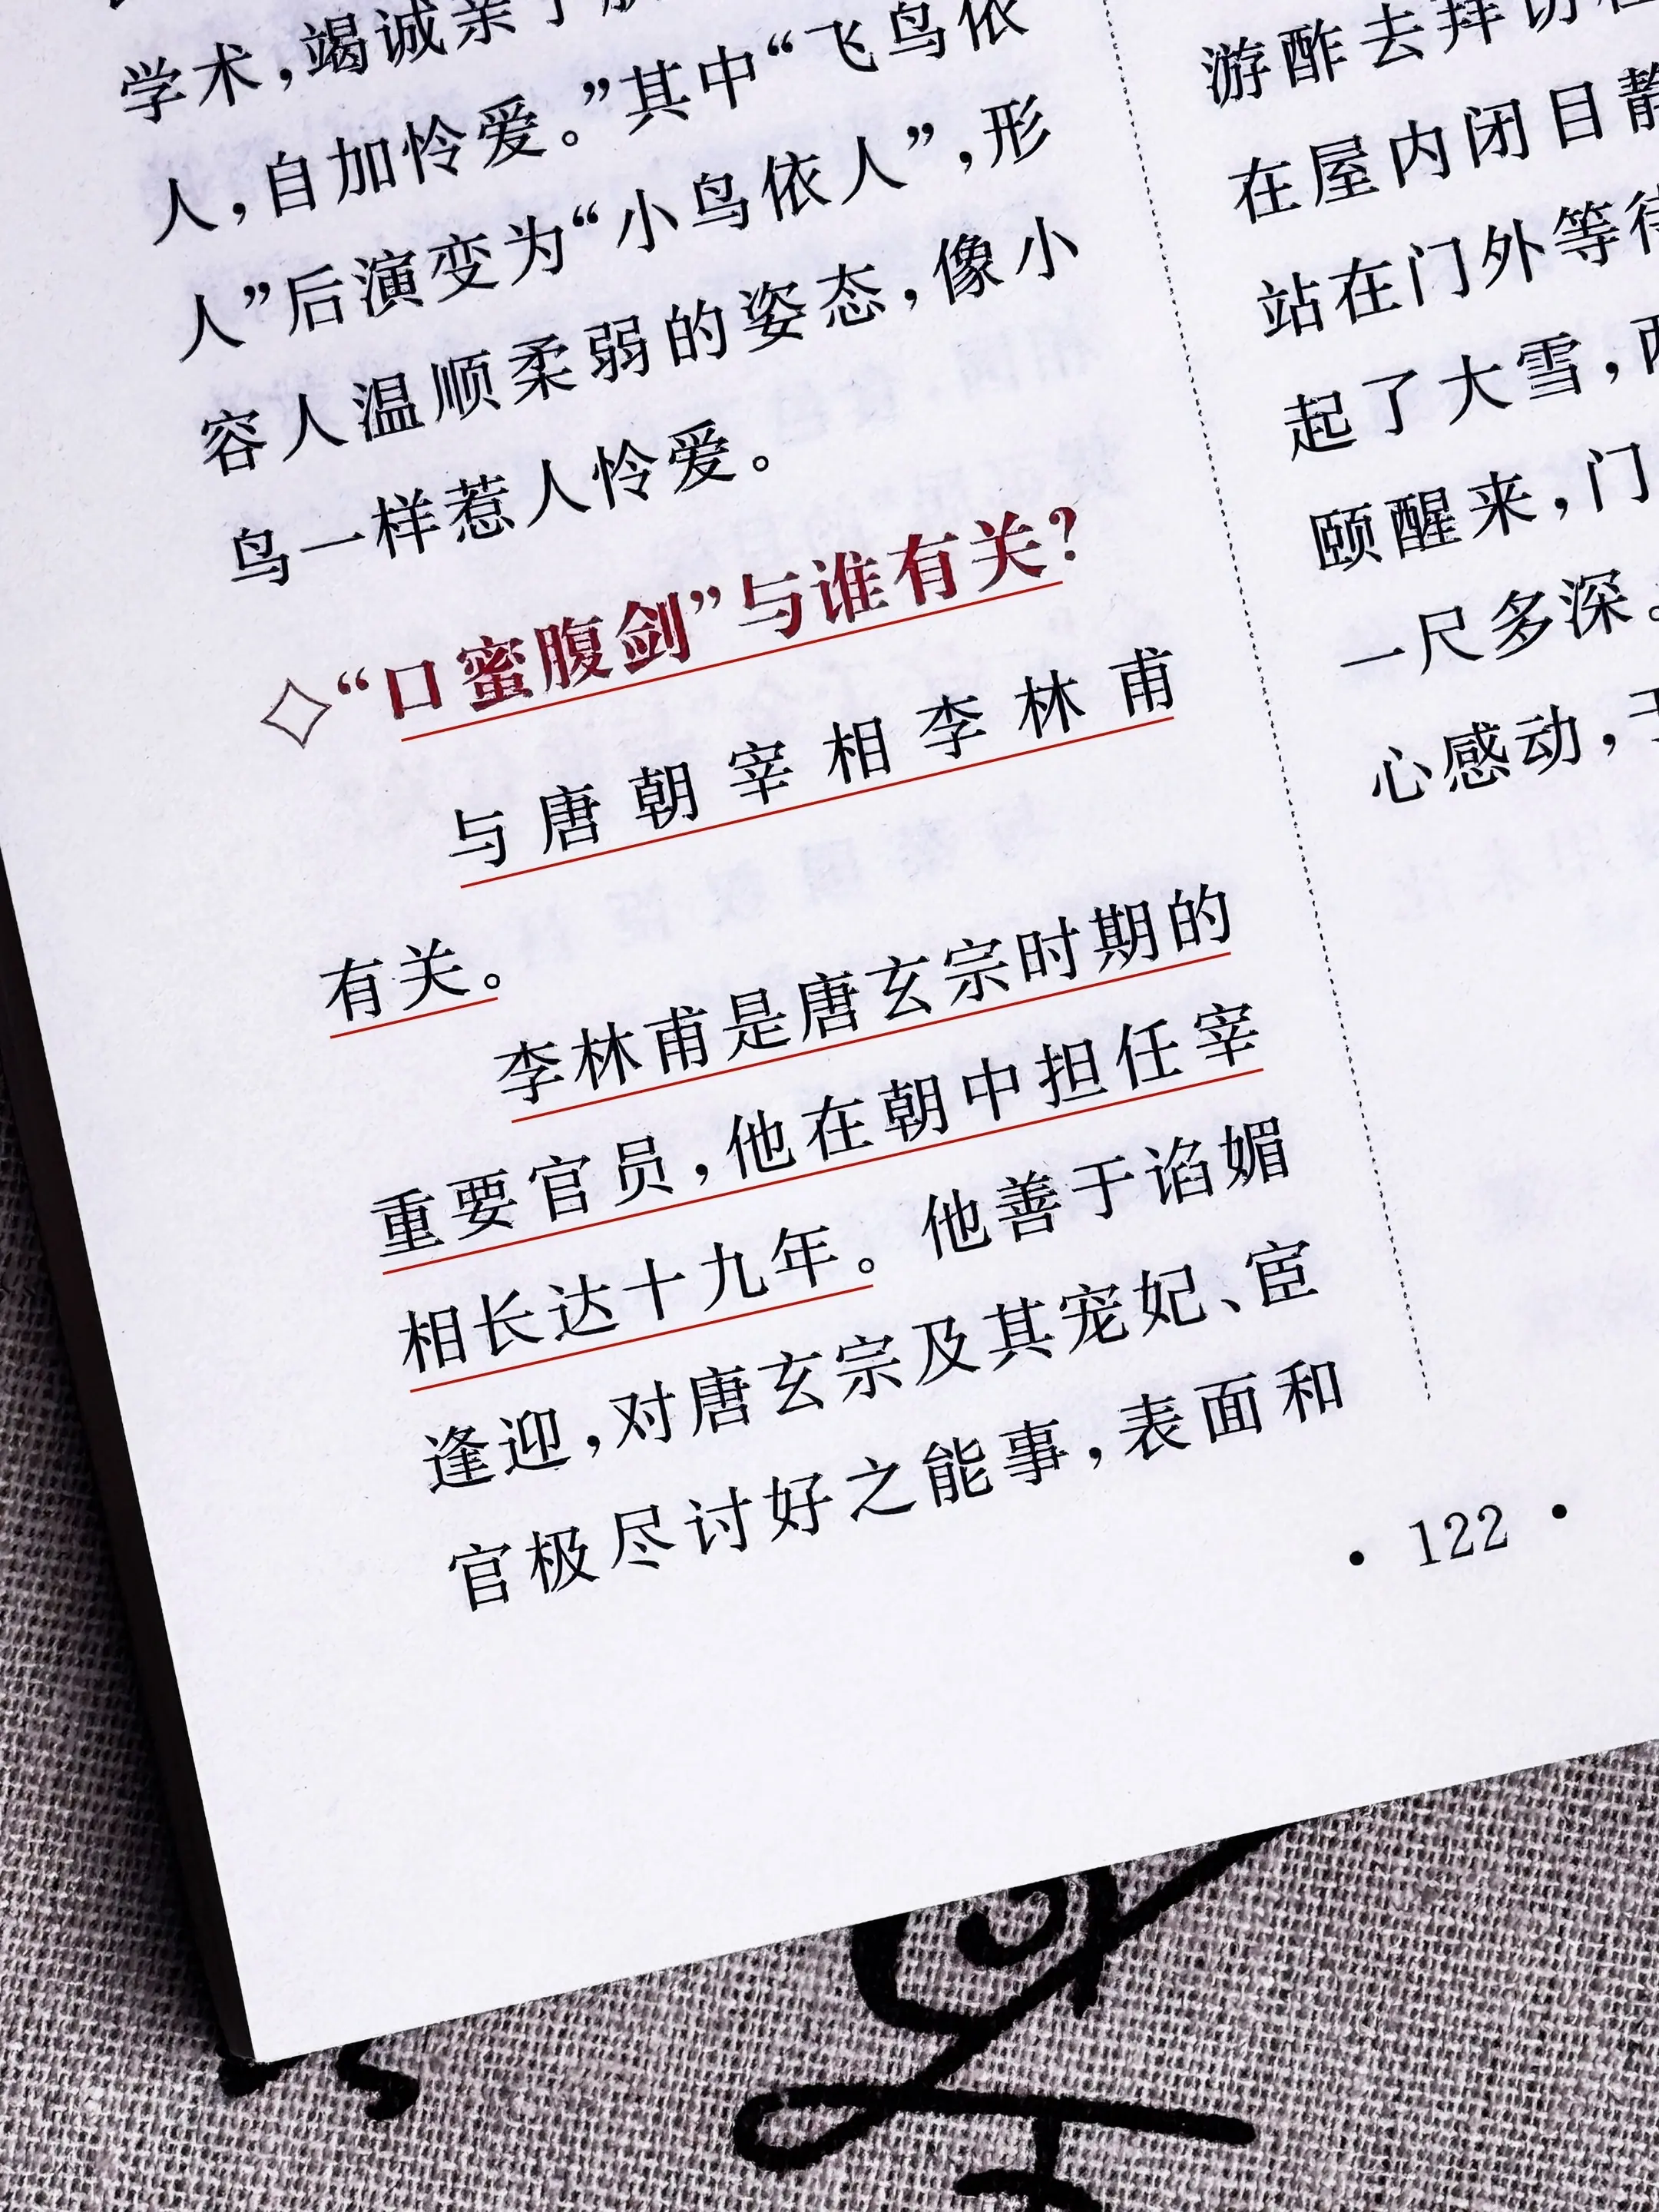 学术，竭诚亲于
人，自加怜爱。”其中“飞鸟依
人”后演变为“小鸟依人”，形
容人温顺柔弱的姿态，像小
鸟一样惹人怜爱。
◇“口蜜腹剑”与谁有关？
与唐朝宰相李林甫
有关。
李林甫是唐玄宗时期的
重要官员，他在朝中担任宰
相长达十九年。他善于谄媚
逢迎，对唐玄宗及其宠妃、宦
官极尽讨好之能事，表面和
游酢去拜访
在屋内闭目静
站在门外等待
起了大雪，两
颐醒来，门
一尺多深。
心感动，于
·122·